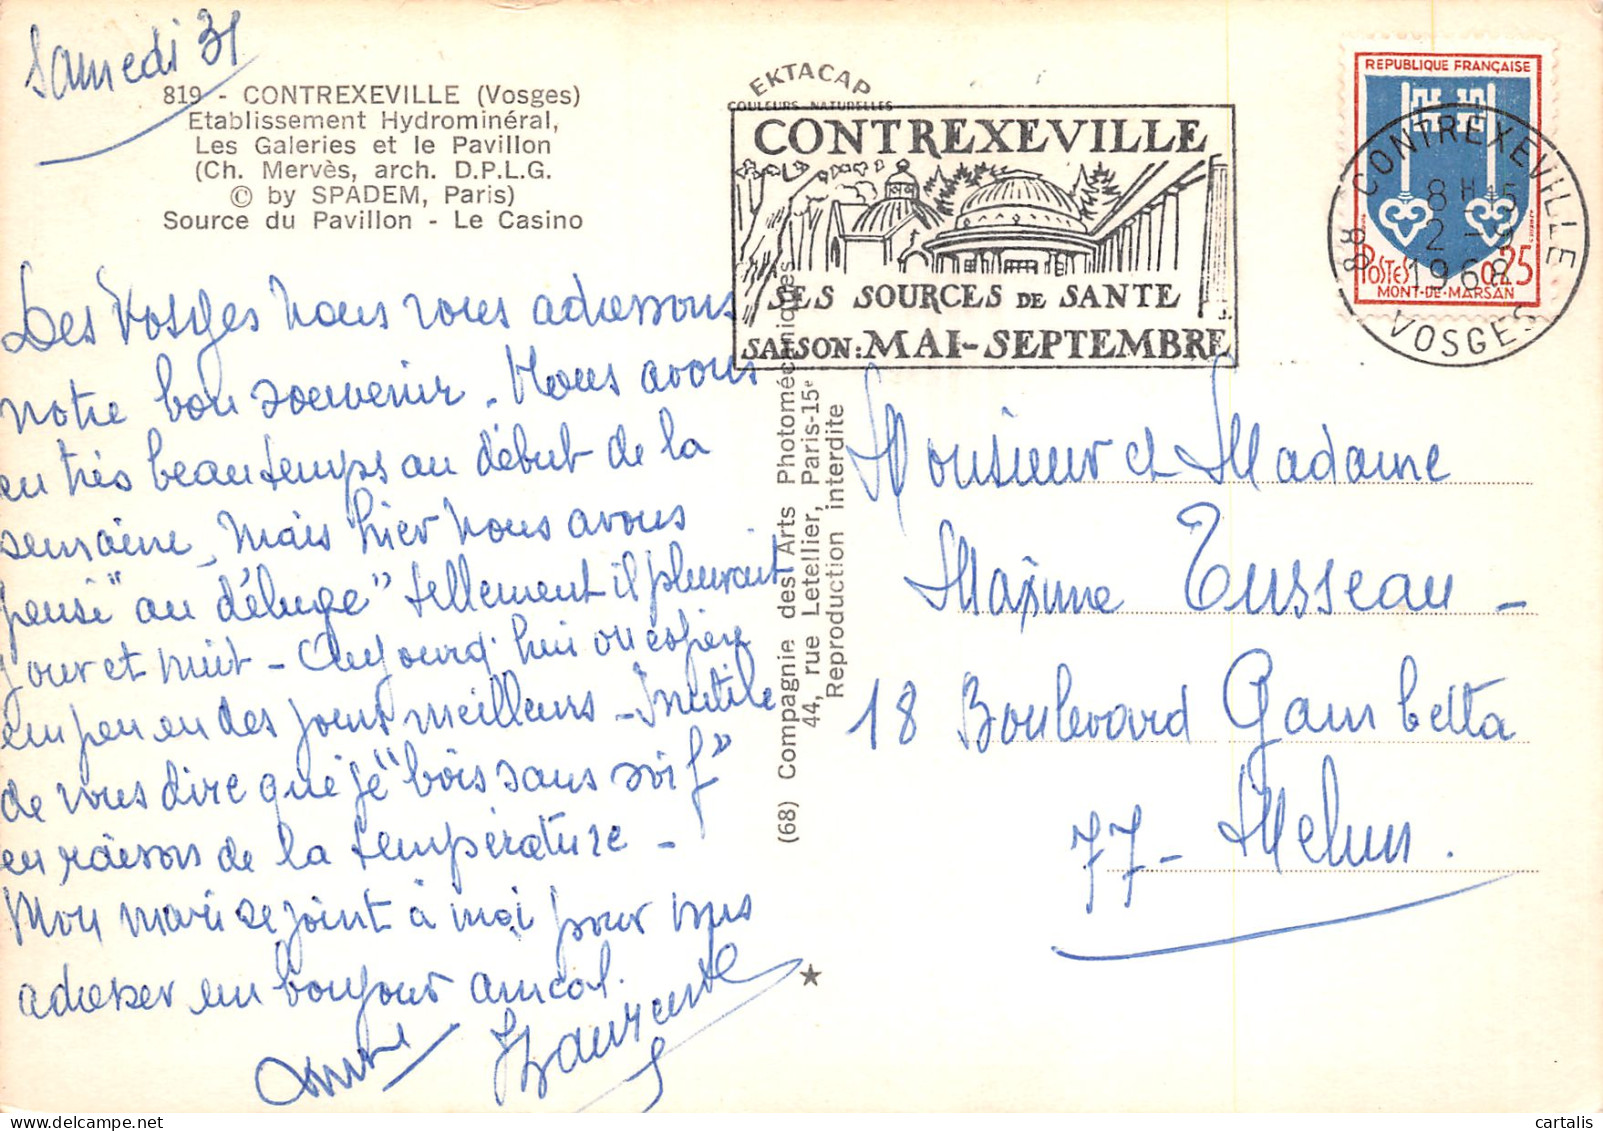 Samedi 31
819 - CONTREXEVILLE (Vosges)
Etablissement Hydrominéral,
Les Galeries et le Pavillon
(Ch. Mervès, arch. D.P.L.G.
© by SPADEM, Paris)
Source du Pavillon - Le Casino
Des Vosges nous vous adressons
notre bon souvenir. Nous avons
eu très beau temps au début de la
semaine, mais hier nous avons
pensé "au déluge" tellement il pleuvait
jour et nuit - Aujourd'hui on espère
un peu en des jours meilleurs - Inutile
de vous dire que je "bois sans soif"
en raison de la température -
Mon mari se joint à moi pour vous
adresser un bonjour amical.
EKTACAP
COULEURS NATURELLES
CONTREXEVILLE
SES SOURCES DE SANTE
SAISON: MAI-SEPTEMBRE
REPUBLIQUE FRANÇAISE
POSTES 0,25
MONT-DE-MARSAN
88 CONTREXEVILLE
8H 45
2 - 9
1968
VOSGES
(68) Compagnie des Arts Photomécaniques
44, rue Letellier, Paris-15e
Reproduction interdite
Monsieur et Madame
Maxime Tusseau -
18 Boulevard Gambetta
77 - Melun.
cartalis